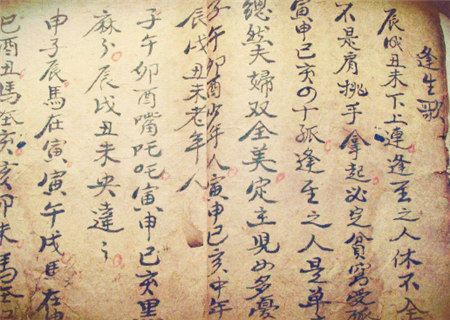 逢生歌
辰戌丑未下上連逢至之人休不全
不是肩挑手拿起必定貧窮受孤
寅申巳亥四十孤逢至之人是单
總然夫婦双全美定主児女多憂
子午卯酉少年人寅申巳亥中年
辰戌丑未老年人
子午卯酉嘴吒吒寅申巳亥黑
麻辰戌丑未央違
申子辰馬在寅寅午戌馬在
巳酉丑馬在亥亥卯未馬在